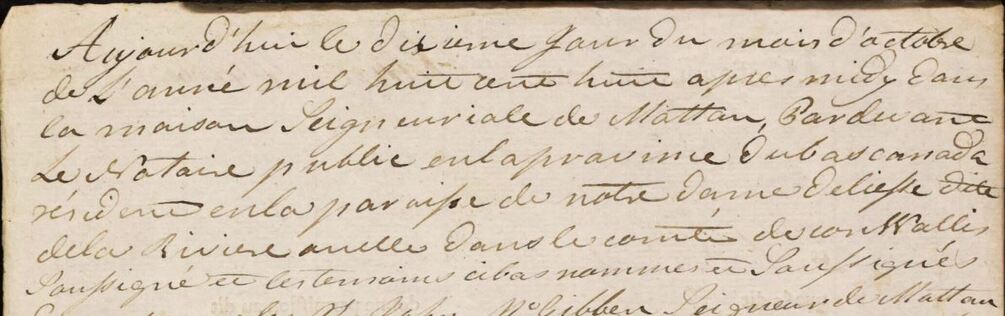 Aujourd'hui le dixieme Jour du mois d'octobre
de L'anné mil huit cent huit apres midy dans
la maison Seigneuriale de Mattan, Pardevant
Le Notaire public en la pravince du bas canada
résident en la paroisse de notre dame deliesse dite
de la Riviere ouelle dans le comté de cornWallis
Soussigné et les temoins cibas nommés et Soussignés
John McGibben Seigneur de Mattan